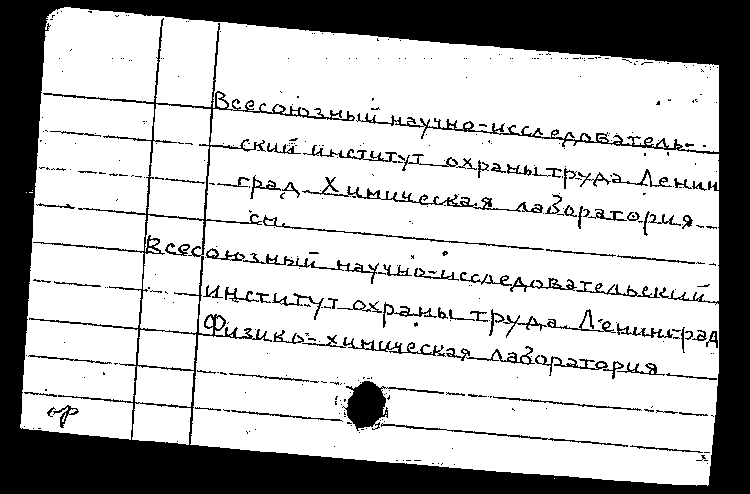 Всесоюзный научно-исследователь-
ский институт охраны труда. Ленин
град. Химическая лаборатория
см.
Всесоюзный научно-исследовательский
институт охраны труда. Ленинград
Физико-химическая лаборатория.
ор